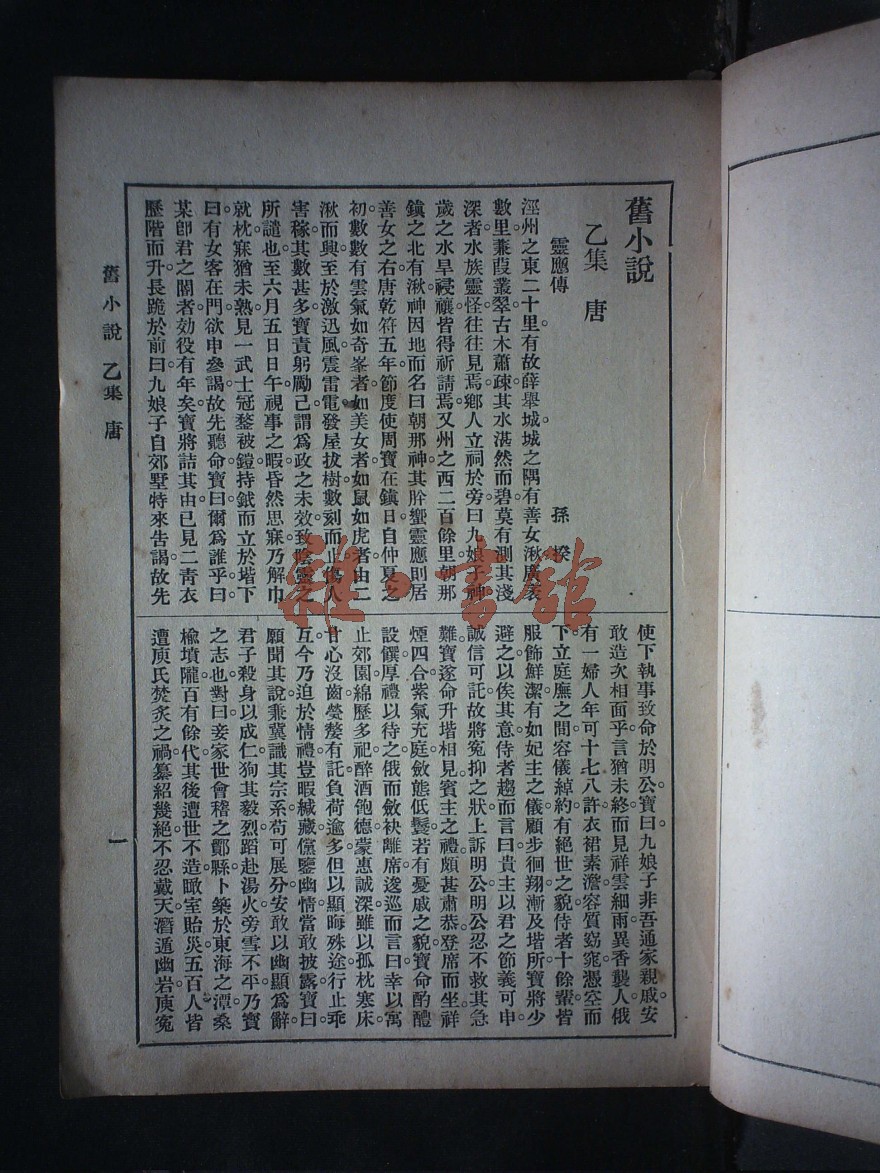 舊小說
乙集　唐
靈應傳　孫揆
涇州之東二十里有故薛舉城。城之隅有善女湫。廣袤
數里。蒹葭叢翠。古木蕭疎。其水湛然而碧。莫有測其淺
深者。水族靈怪往往見焉。鄉人立祠於旁。曰九娘子神。
歲之水旱祲禳。皆得祈請焉。又州之西二百餘里。朝那
鎮之北。有湫神。因地而名曰朝那神。其肸蠁靈應。則居
善女之右。唐乾符五年。節度使周寶在鎮日。自仲夏之
初。數數有雲氣。如奇峯者。如美女者。如鼠如虎者。由二
湫而興。至於激迅風。震雷電。發屋拔樹。數刻而止。傷人
害稼。其數甚多。寶責躬勵己。謂爲政之未效。致陰靈之
所譴也。至六月五日。日午視事之暇。昏然思寐。乃解巾
就枕。寐猶未熟。見一武士冠鍪被鎧。持鉞而立於堦下。
曰。有女客在門。欲申參謁。故先聽命。寶曰。爾爲誰乎。曰
某卽君之閽者。効役有年矣。寶將詰其由。已見二青衣
歷階而升。長跪於前曰。九娘子自郊墅特來告謁。故先
使下執事致命於明公。寶曰。九娘子非吾通家親戚。安
敢造次相面乎。言猶未終。而見祥雲細雨。異香襲人。俄
有一婦人年可十七八許。衣裙素澹。容質窈窕。憑空而
下。立庭廡之間。容儀綽約。有絕世之貌。侍者十餘輩。皆
服飾鮮潔。有如妃主之儀。顧步徊翔。漸及堦所。寶將少
避之。以俟其意。侍者趨而言曰。貴主以君之節義可申。
誠信可託。故將冤抑之狀上訴明公。明公忍不救其急
難。寶遂命升堦相見。賓主之禮。頗甚肅恭。登席而坐。祥
煙四合。紫氣充庭。斂態低鬟。若有憂戚之貌。寶命酌醴
設饌。厚禮以待之。俄而斂袂離席。逡巡而言曰。幸以寓
止郊園。綿歷多祀。醉酒飽德。蒙惠誠深。雖以孤枕寒床。
甘心沒齒。煢嫠有託。負荷逾多。但以顯晦殊途。行止乖
互。今乃迫於情禮。豈暇緘藏。儻鑒幽情。當敢披露。寶曰。
願聞其說。兼冀識其宗系。苟可展分。安敢以幽顯爲辭。
君子殺身以成仁。狥其毅烈。蹈赴湯火。旁雪不平。乃寶
之志也。對曰。妾家世會稽之鄮縣。卜築於東海之潭。桑
楡墳隴。百有餘代。其後遭世不造。瞰室貽災。五百人皆
遭庾氏焚炙之禍。纂紹幾絕。不忍戴天。潛遁幽岩。庾冤
舊小說　乙集　唐
一
雜·書館